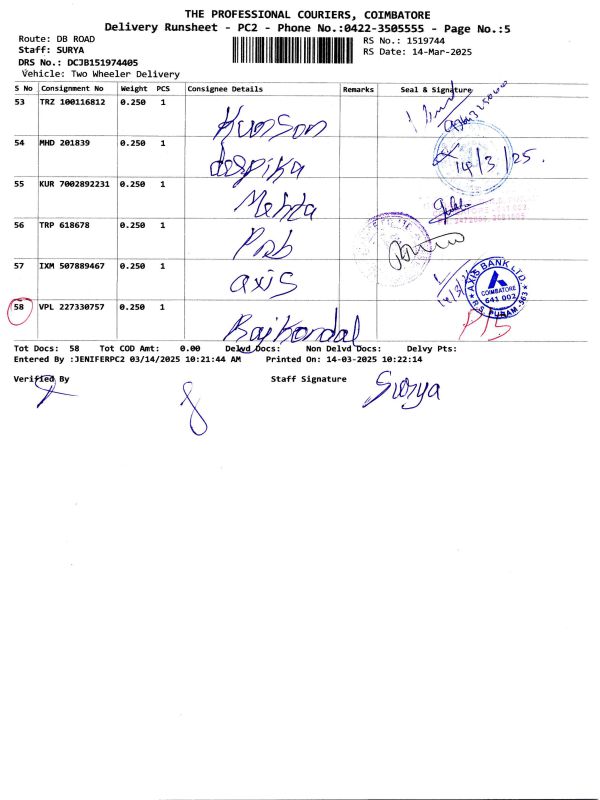 THE PROFESSIONAL COURIERS, COIMBATORE
Delivery Runsheet - PC2 - Phone No.:0422-3505555 - Page No.:5
Route: DB ROAD
RS No.: 1519744
Staff: SURYA
RS Date: 14-Mar-2025
DRS No.: DCJB151974405
Vehicle: Two Wheeler Delivery
S No Consignment No Weight PCS Consignee Details Remarks Seal & Signature
53 TRZ 100116812 0.250 1 Kumson
54 MHD 201839 0.250 1 deepika 14/3/25.
55 KUR 7002892231 0.250 1 Mehta
56 TRP 618678 0.250 1
57 IXM 507889467 0.250 1 axis
AXIS BANK LTD.
COIMBATORE
641 002
R.S. PURAM-563
58 VPL 227330757 0.250 1
Tot Docs: 58 Tot COD Amt: 0.00 Delvd Docs: Non Delvd Docs: Delvy Pts:
Entered By :JENIFERPC2 03/14/2025 10:21:44 AM Printed On: 14-03-2025 10:22:14
Verified By Staff Signature Surya